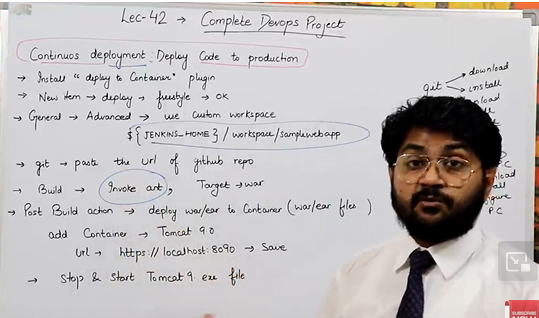 Lec-42 → Complete Devops Project
Continuos deployment : Deploy Code to production
→ Install "deploy to Container" plugin
→ New item → deploy → freestyle → OK
→ General → Advanced → use Custom workspace
${JENKINS_HOME}/workspace/samplewebapp
→ git → paste the url of github repo
→ Build → Invoke ant, Target → war
→ Post Build action → deploy war/ear to Container (war/ear files)
add Container → Tomcat 9.0
Url → https://localhost:8090 → Save
→ Stop & Start Tomcat 9 exe file
git → download
→ install
P.C
SUBSCRIBE
NOW